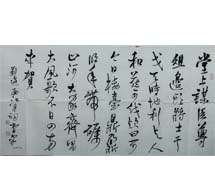 堂上謀臣尊
俎邊頭將士干
戈天時地利與人
和燕可伐歟曰可
今日樓臺鼎鼐
明年帶礪
山河大家齊唱
大風歌不日四方
來賀
劉過西江月詞